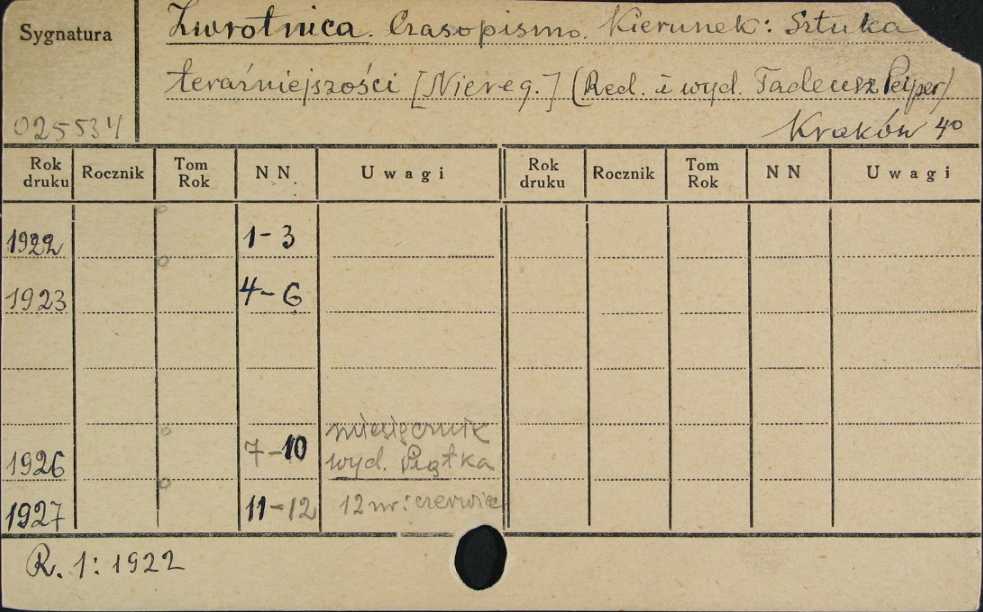 Sygnatura
Zwrotnica. Czasopismo. Kierunek: Sztuka
teraźniejszości [Niereg.] (Red. i wyd. Tadeusz Peiper)
025534
Kraków 4°
Rok druku Rocznik Tom Rok NN Uwagi Rok druku Rocznik Tom Rok NN Uwagi
1922 1-3
1923 4-6
miesięcznik
1926 7-10 wyd. Piątka
1927 11-12 12 nr: czerwiec
R. 1: 1922